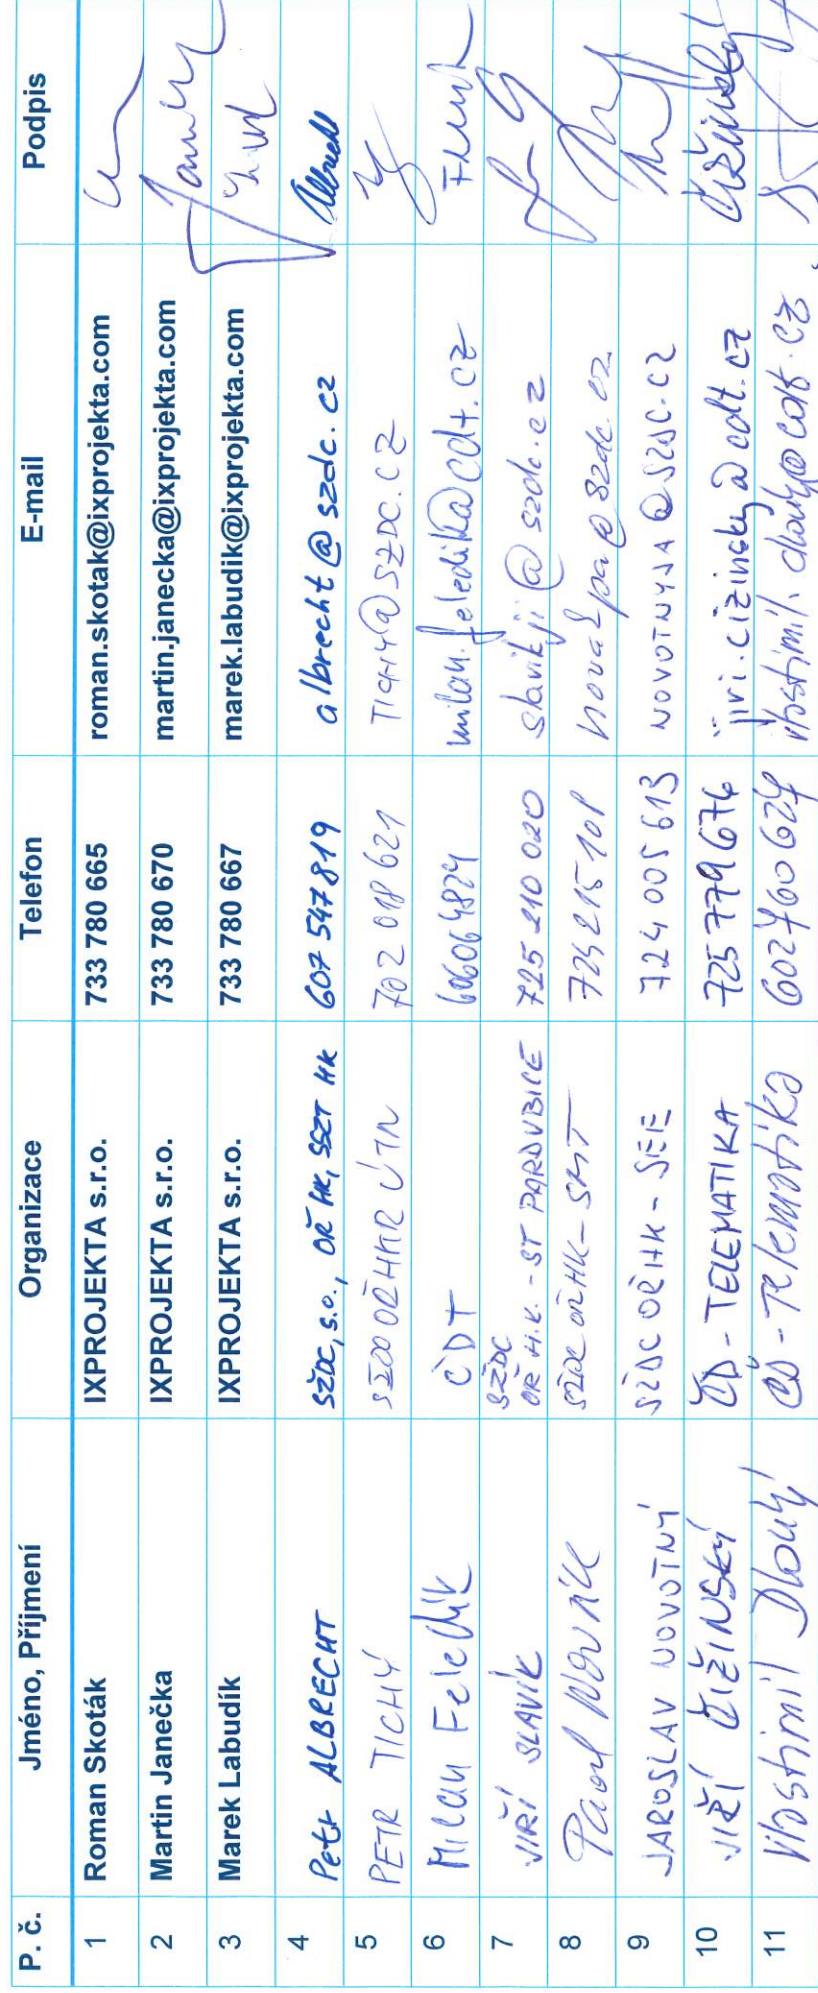 P. č. Jméno, Příjmení Organizace Telefon E-mail Podpis
1 Roman Skoták IXPROJEKTA s.r.o. 733 780 665 roman.skotak@ixprojekta.com
2 Martin Janečka IXPROJEKTA s.r.o. 733 780 670 martin.janecka@ixprojekta.com
3 Marek Labudík IXPROJEKTA s.r.o. 733 780 667 marek.labudik@ixprojekta.com
4 Petr ALBRECHT SŽDC, s.o., OŘ HK, SSZT HK 607 547 819 albrecht@szdc.cz Albrecht
5 PETR TICHÝ 702 018 621 TICHY@SZDC.CZ
6 Milan Feledik ČDT 606064824 milan.feledik@cdt.cz
7 JIŘÍ SLAVÍK SŽDC
OŘ H.K. - ST PARDUBICE 725 210 020 slavikji@szdc.cz
8 Pavel Novák SŽDC OŘ HK - SMT @szdc.cz
9 JAROSLAV NOVOTNÝ SŽDC OŘ HK - SEE 724 005 613 NOVOTNYJA@SZDC.CZ
10 JIŘÍ ČIŽINSKÝ ČD - TELEMATIKA 725 779 676 jiri.cizinsky@cdt.cz Čižinský
11 Vlastimil Dlouhý ČD - Telematika 602760624 vlastimil.dlouhy@cdt.cz